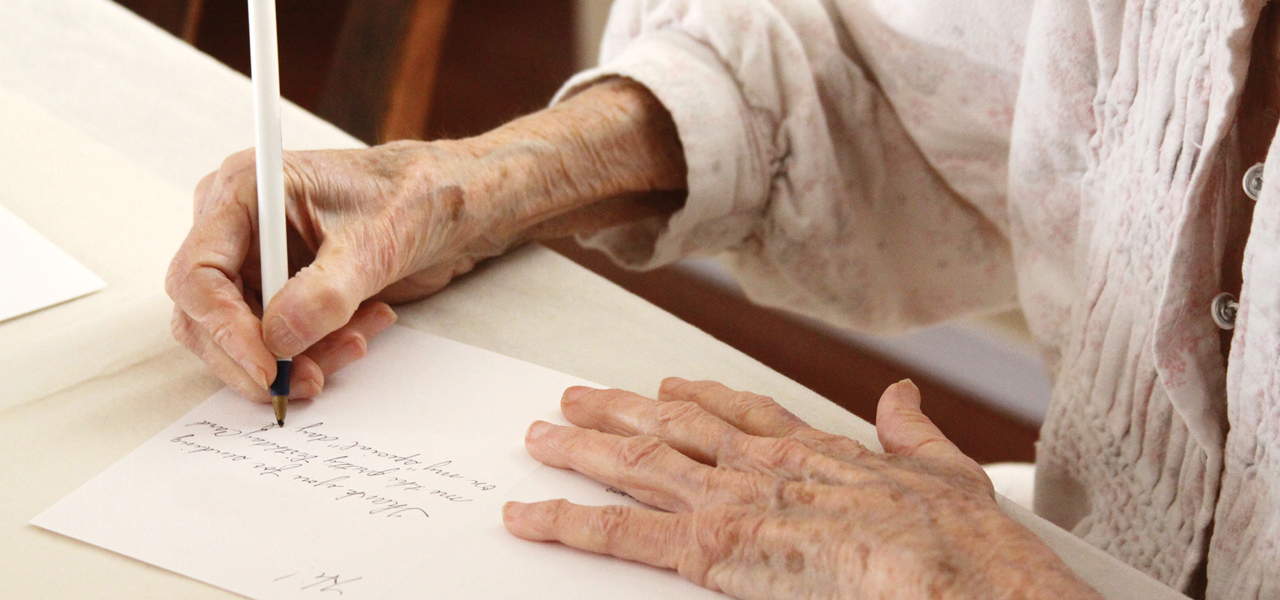 Hi!
Thank you for sending
me the pretty birthday card
on my special day